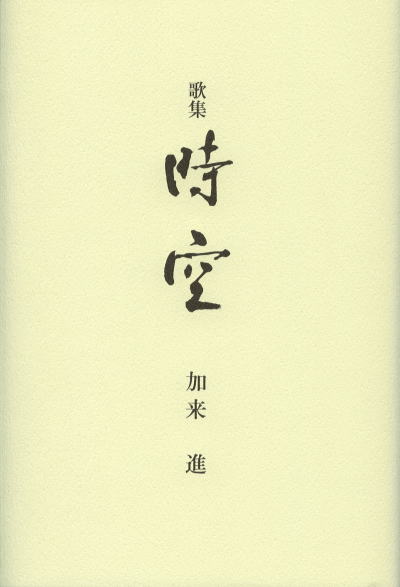 歌集
時空
加来 進